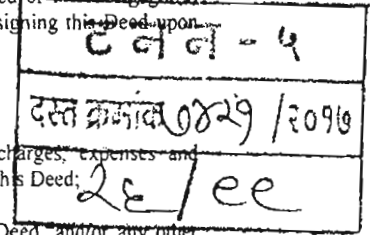 signing this Deed upon
ट न न - ५
दस्त क्रमांक ७४२१ /२०१७
charges, expenses and
this Deed;
२६/९९
Deed, and/or any other